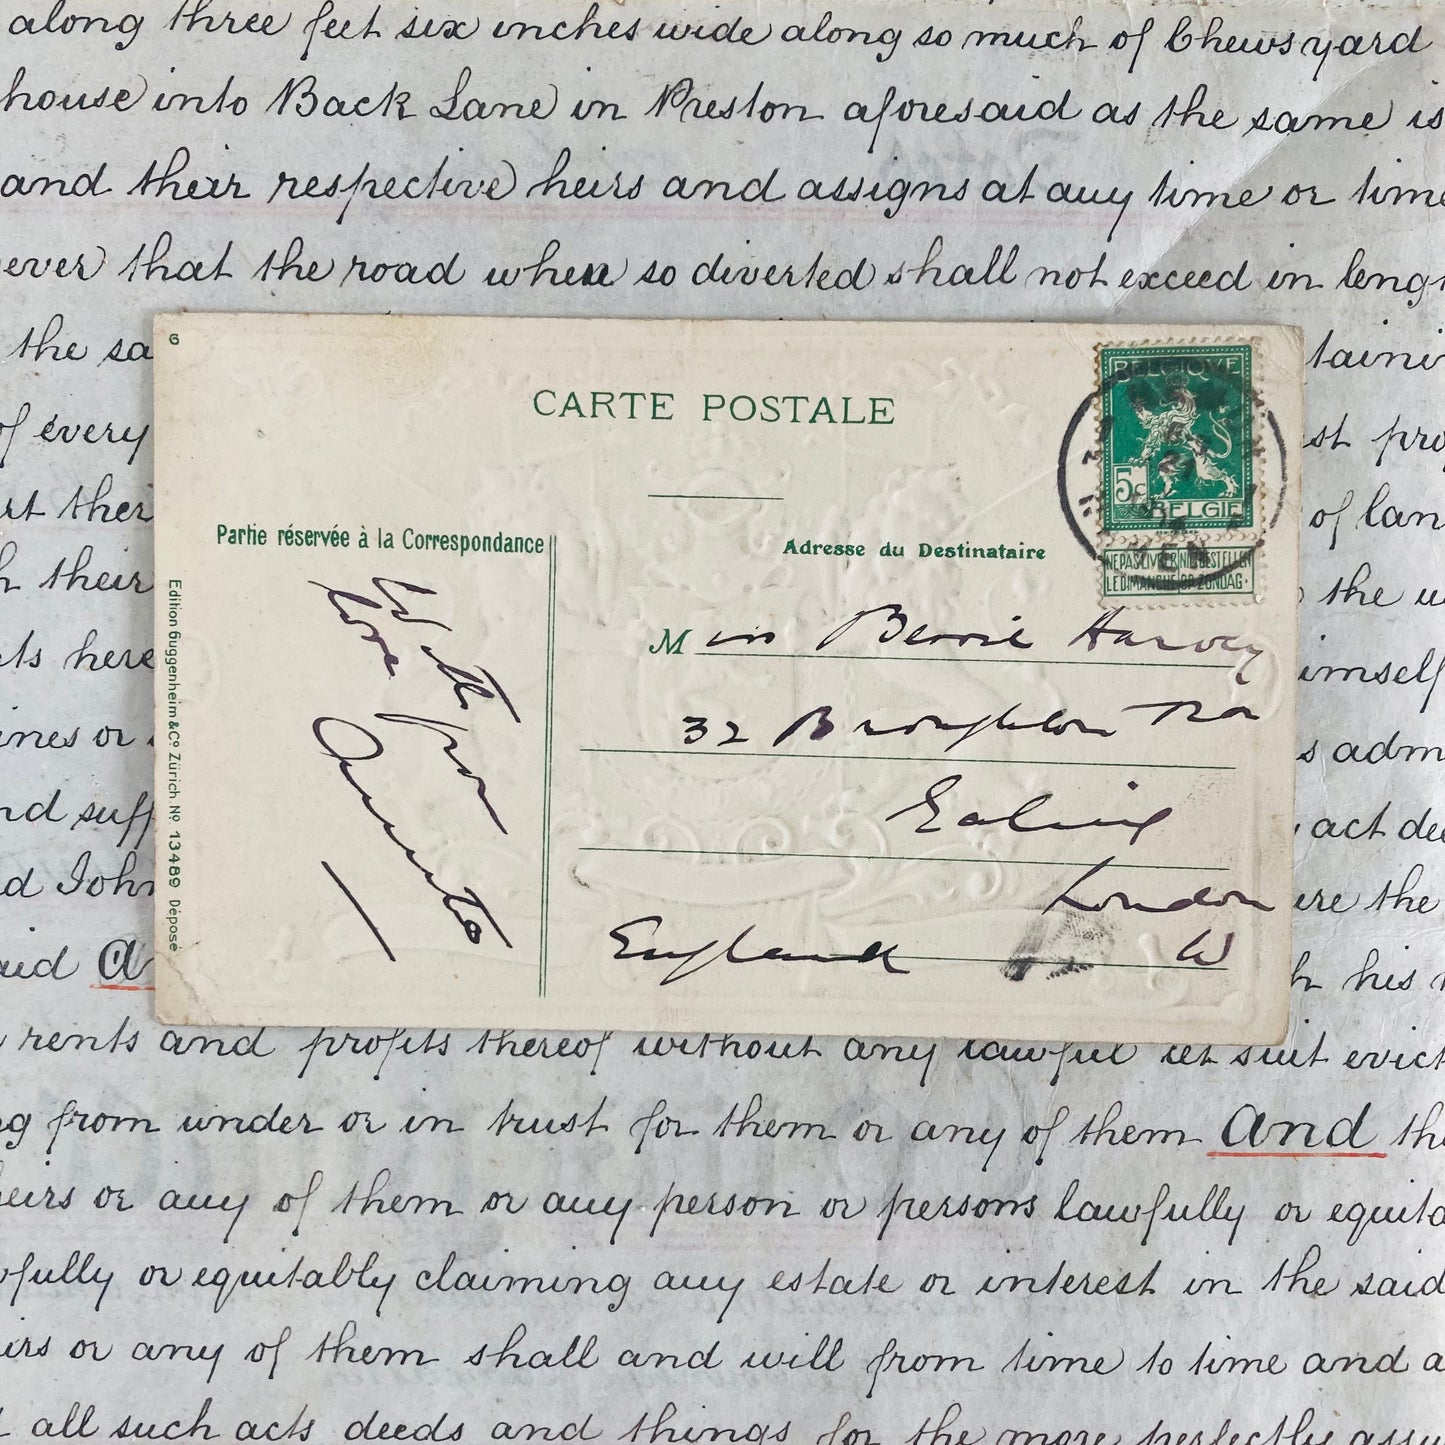 along three feet six inches wide along so much of Chews yard
house into Back Lane in Preston aforesaid as the same is
and their respective heirs and assigns at any time or time
ever that the road when so diverted shall not exceed in leng
the sa
taini
of every
st pro
rt their
of lan
h their
the u
ts here
imself
ines or
s adm
nd suff
act dee
d John
ere the
aid a
h his
rents and profits thereof without any lawful let suit evict
g from under or in trust for them or any of them And the
eirs or any of them or any person or persons lawfully or equita
fully or equitably claiming any estate or interest in the said
irs or any of them shall and will from time to time and a
all such acts deeds and things for the more perfectly assu
6
CARTE POSTALE
BELGIQUE
5c
BELGIË
NE PAS LIVRER NIET BESTELLEN
LE DIMANCHE OP ZONDAG.
Partie réservée à la Correspondance
Adresse du Destinataire
Edition Guggenheim & Co Zürich. No. 13489 Déposé
With
love from
M iss Bennie Harvey
32 Broughton Rd
Ealing
London
England W